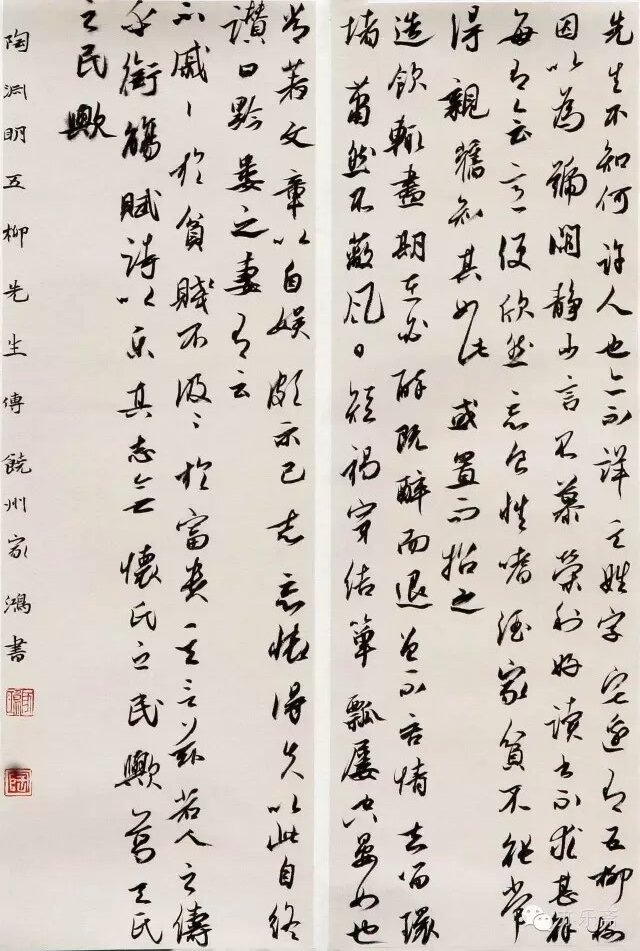 先生不知何許人也亦不詳其姓字宅邊有五柳樹
因以為號閒靜少言不慕榮利好讀書不求甚解
每有會意便欣然忘食性嗜酒家貧不能常
得親舊知其如此或置而招之
造飲輒盡期在必醉既醉而退曾不吝情去留環
堵蕭然不蔽風日短褐穿結簞瓢屢空晏如也
常著文章以自娛頗示己志忘懷得失以此自終
讚曰黔婁之妻有云
不戚々於貧賤不汲々於富貴其言茲若人之儔
乎銜觴賦詩以樂其志無懷氏之民歟葛天氏
之民歟
陶淵明五柳先生傳 饒州家鴻書